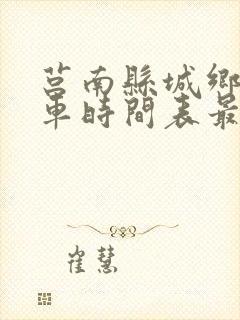 莒南縣城鄉
車時間表最
崔慧